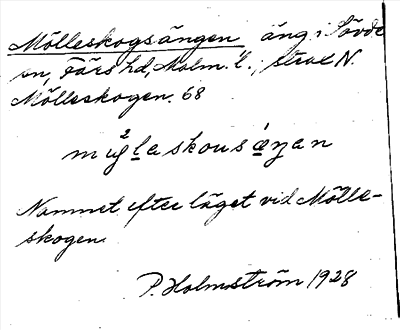 Mölleskogsängen äng i Sövde
sn, Färs hd, Malm. l.; strax N.
Mölleskogen. 68
Namnet efter läget vid Mölle-
skogen.
P. Holmström 1928